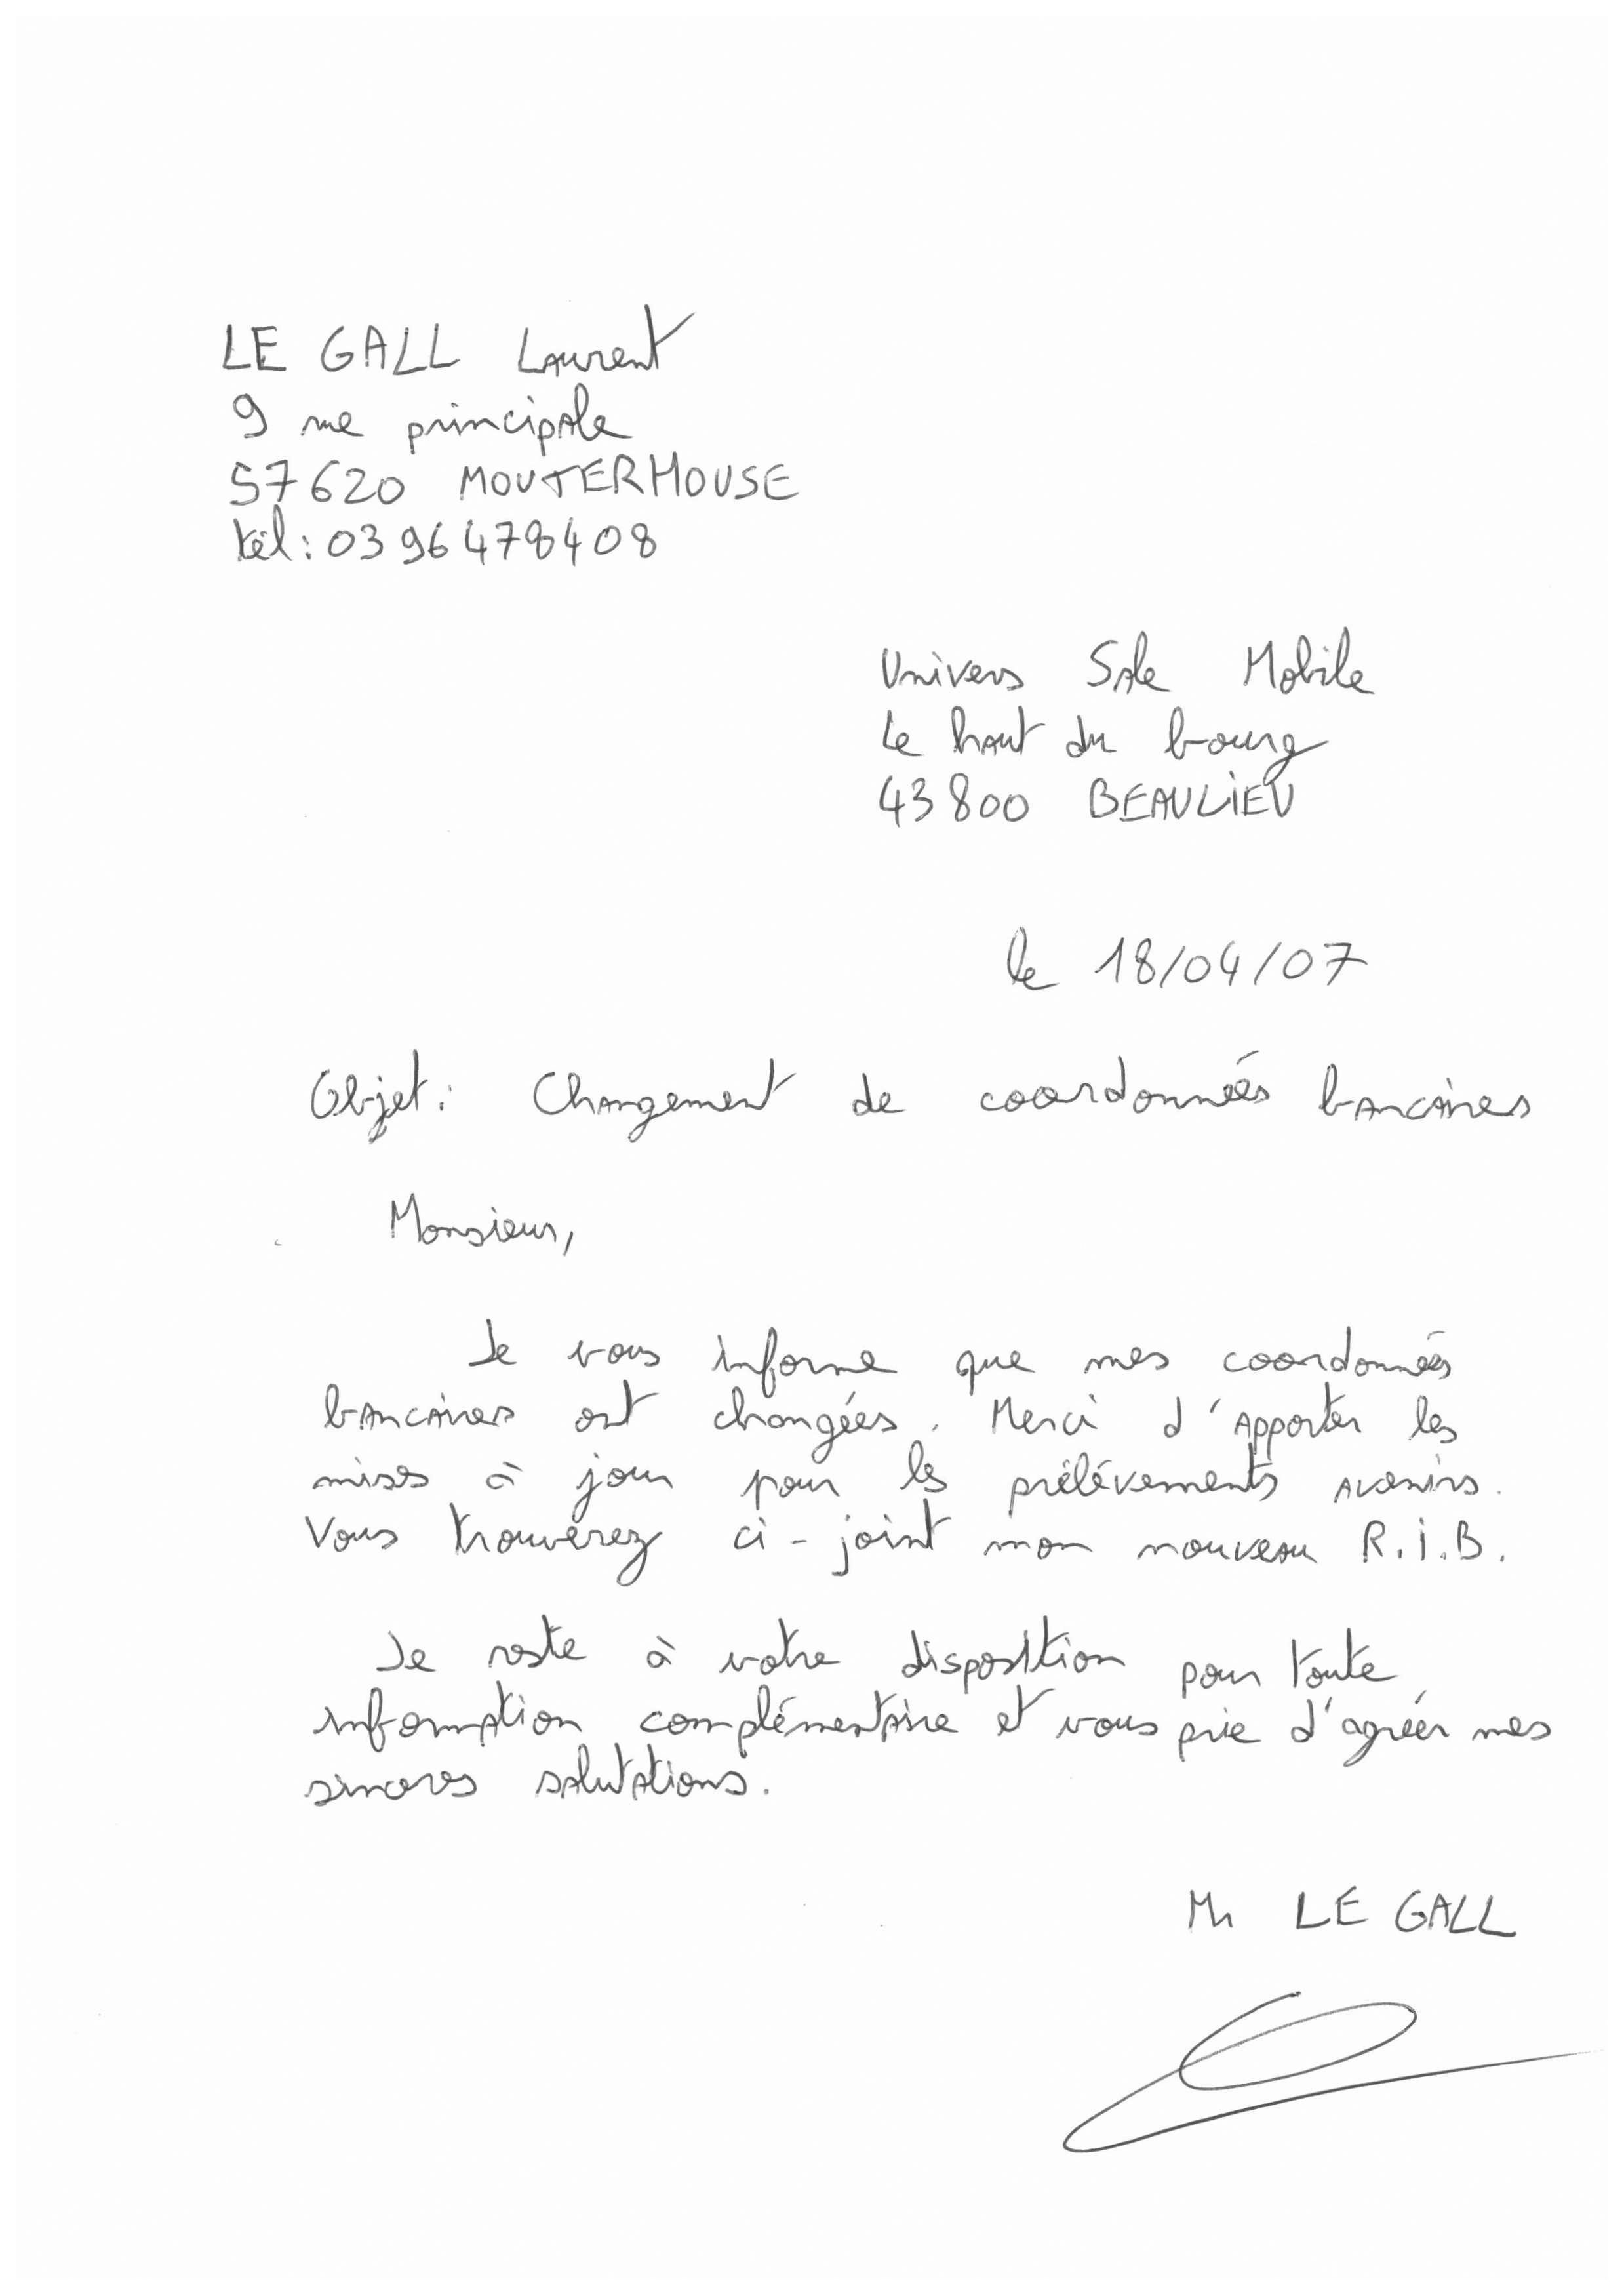 LE GALL Laurent
9 rue principale
57620 MOUTERHOUSE
tél : 03 96 47 84 08
Univers Sale Mobile
Le haut du bourg
43800 BEAULIEU
le 18/04/07
Objet : Changement de coordonnées bancaires
Monsieur,
Je vous informe que mes coordonnées
bancaires ont changées. Merci d'apporter les
mises à jour pour les prélévements avenirs.
Vous trouverez ci-joint mon nouveau R.I.B.
Je reste à votre disposition pour toute
information complémentaire et vous prie d'agréér mes
sincères salutations.
Mr LE GALL